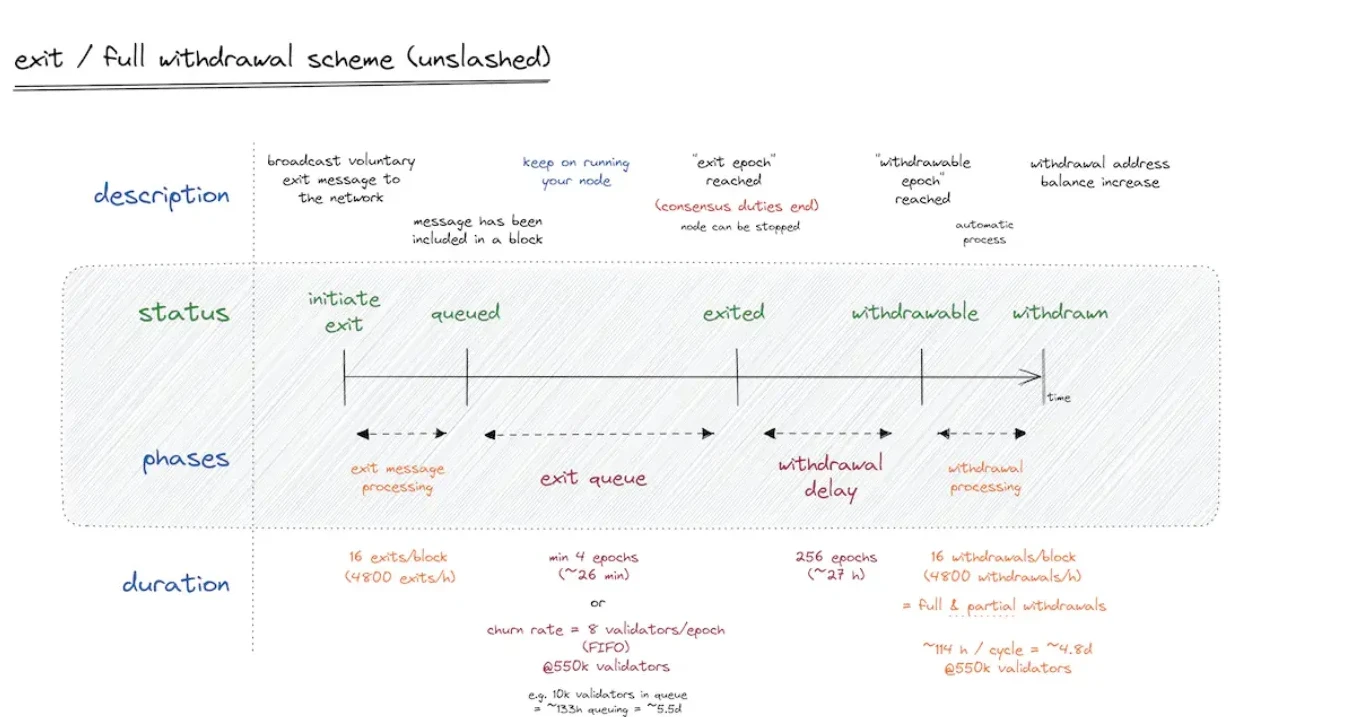 exit / full withdrawal scheme (unslashed)
description
broadcast voluntary
exit message to
the network
message has been
included in a block
keep on running
your node
"exit epoch"
reached
(consensus duties end)
node can be stopped
"withdrawable
epoch"
reached
automatic
process
withdrawal address
balance increase
status
initiate
exit
queued
exited
withdrawable
withdrawn
time
phases
exit message
processing
exit queue
withdrawal
delay
withdrawal
processing
duration
16 exits/block
(4800 exits/h)
min 4 epochs
(~26 min)
or
churn rate = 8 validators/epoch
(FIFO)
@550k validators
e.g. 10k validators in queue
= ~133h queuing = ~5.5d
256 epochs
(~27 h)
16 withdrawals/block
(4800 withdrawals/h)
= full & partial withdrawals
~114 h / cycle = ~4.8d
@550k validators